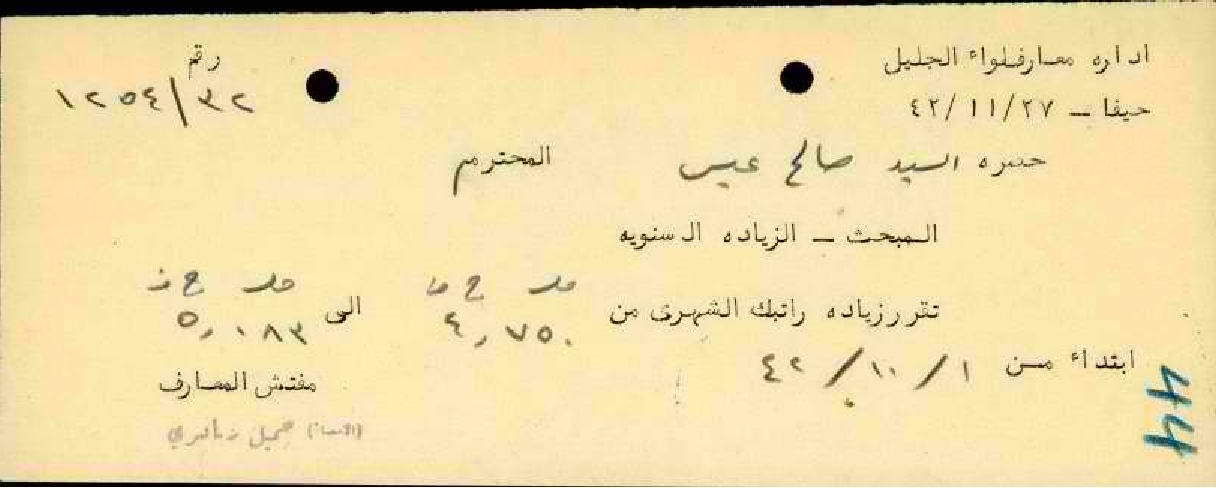 اداره معارف لواء الجليل
رقم
٣٢/١٢٥٤
حيفا ــ ٤٢/١١/٢٧
حضره السيد صالح عيسى المحترم
المبحث ــ الزياده السنويه
ملـ ج ف ملـ ج ف
تقرر زياده راتبك الشهرى من ٤,٧٥٠ الى ٥,١٨٣
ابتداء من ٤٢/١٠/١
مفتش المعارف
جميل
44